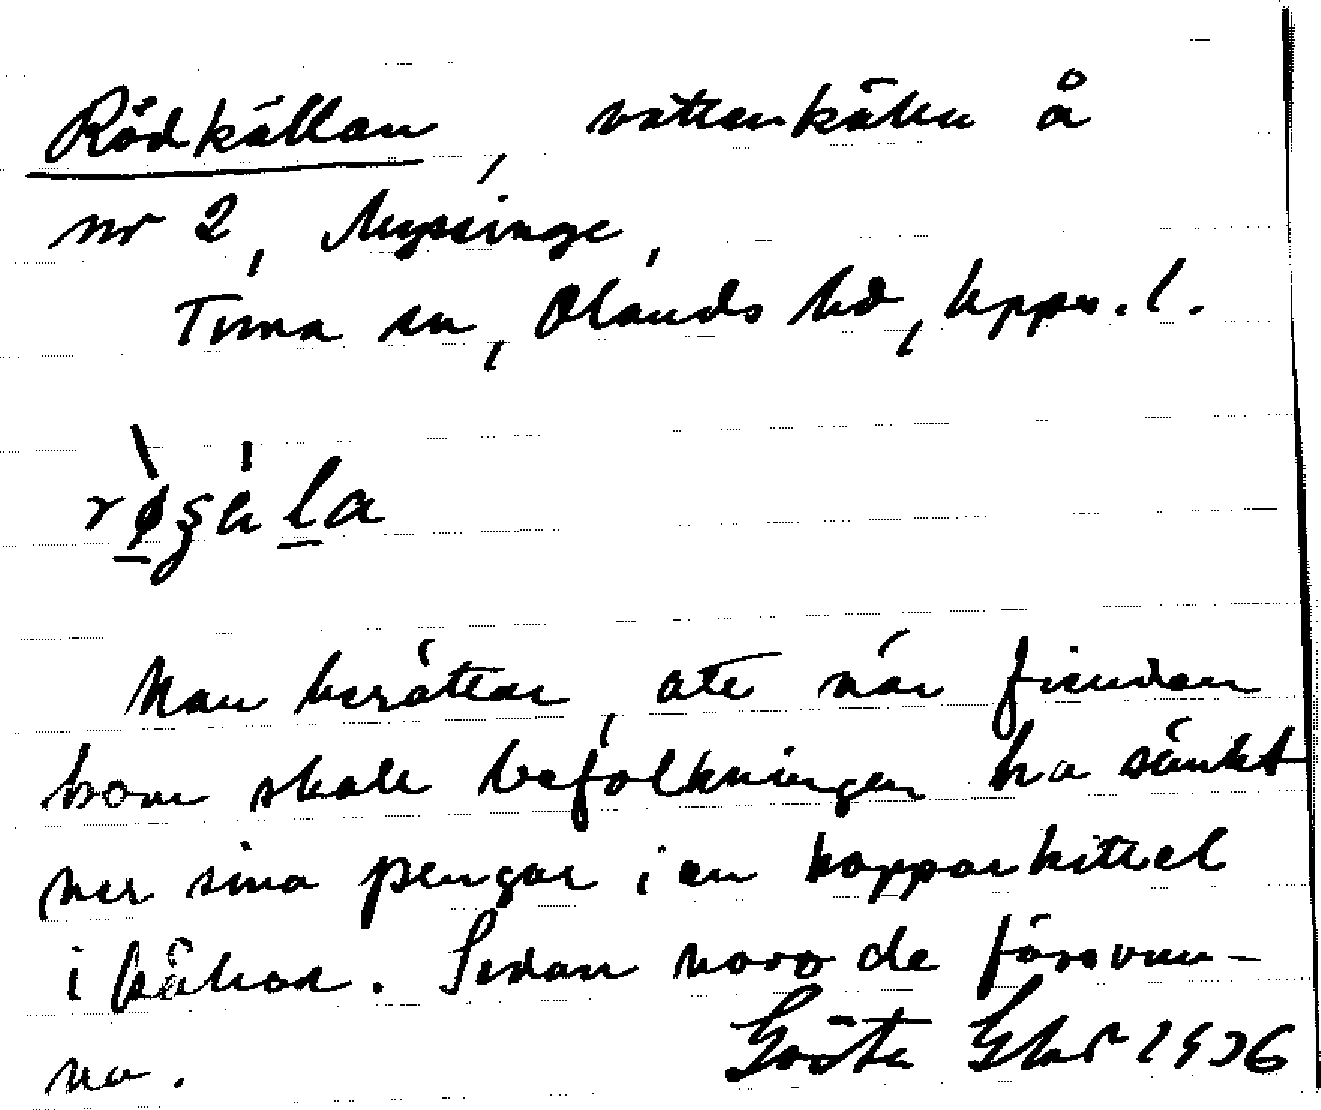 Rödkällan, vattenkälla å
nr 2, Myssinge,
Tuna sn, Olands hd, Upps. l.
Man berättar, att när fienden
kom skall befolkningen ha sänkt
ner sina pengar i en kopparkittel
i källan. Sedan voro de försvun-
na.
Gösta 1936